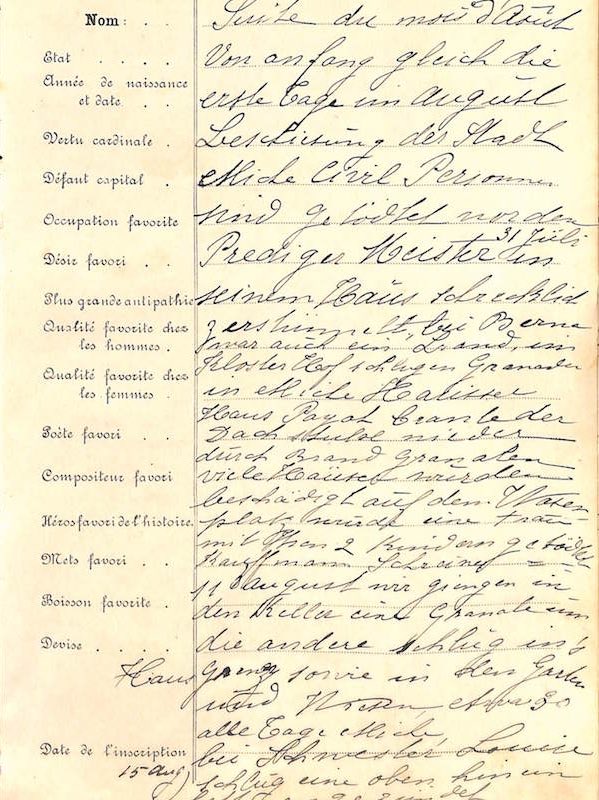 Nom: . . Suite du mois d'Août
Etat . . . . Von anfang gleich die
Année de naissance
et date . . erste Tage im august
Vertu cardinale . Beschiesung der Stadt
Défaut capital . etliche Civil Personnen
Occupation favorite sind getödtet worden
31 Juli
Désir favori . . Prediger Meister in
Plus grande antipathie seinem Haus schrecklich
Qualité favorite chez
les hommes . bei Berna
zwar auch ein Brand, im
Kloster Hof schlugen Granaden
Qualité favorite chez
les femmes . in etliche Haüsser
Haus Payot brante der
Poète favori . . Dach nieder
durch Brand Granaten
Compositeur favori viele Haüser wurden
beschädigt auf dem Wasen
Héros favori de l'histoire. platz wurde eine Frau
mit 2 Kindern getödtet
Mets favori . . Kauffmann Schreiner
11 august wir giengen in
Boisson favorite . den Keller eine Granate um
Devise . . . . die andere schlug in's
Haus sowie in den Garten
und etwa 30
alle Tage etliche,
Date de l'inscription bei Schwester Louise
15 Aug) schlug eine oben hinein